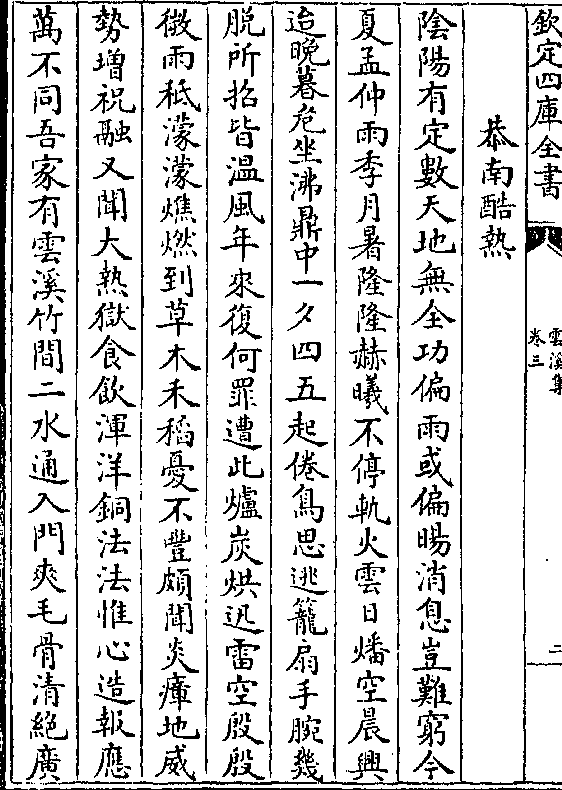 欽定四庫全書
雲溪集
卷三
二
恭南酷熱
陰陽有定數天地無全功偏雨或偏暘消息豈難窮今
夏孟仲雨季月暑隆隆赫曦不停軌火雲日燔空晨興
迨晚暮危坐沸鼎中一夕四五起倦鳥思逃籠扇手腕幾
脱所招皆温風年來復何罪遭此爐炭烘迅雷空殷殷
微雨秪濛濛燋燃到草木禾稻憂不豐頗聞炎瘴地威
勢増祝融又聞大熱獄食飲渾洋銅法法惟心造報應
萬不同吾家有雲溪竹間二水通入門爽毛骨清絶廣